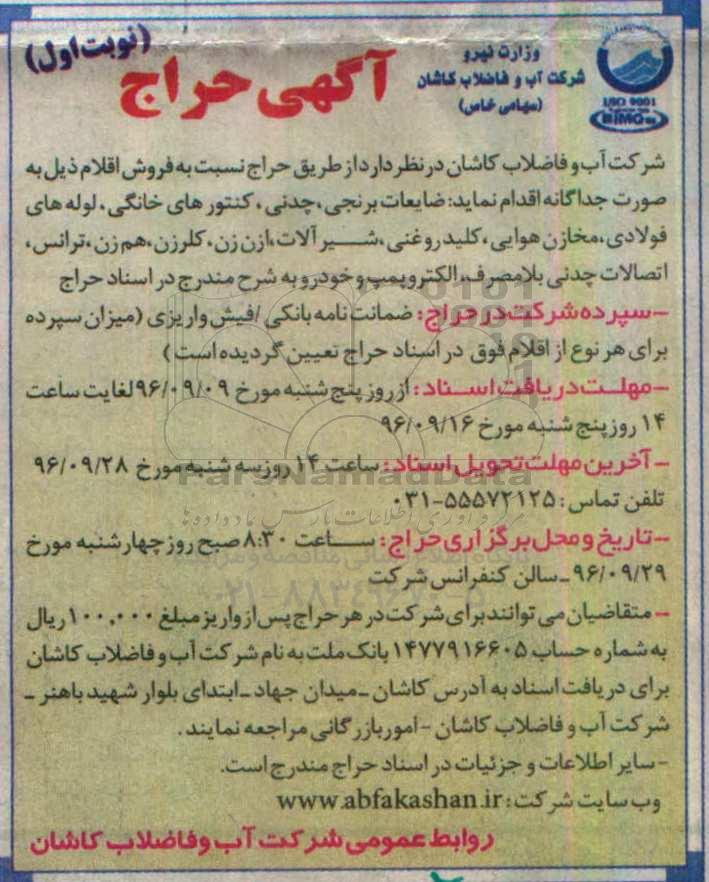 (نوبت اول)
آگهی حراج
وزارت نیرو
شرکت آب و فاضلاب کاشان
(سهامی خاص)
ISO 9001
شرکت آب و فاضلاب کاشان در نظر دارد از طریق حراج نسبت به فروش اقلام ذیل به
صورت جداگانه اقدام نماید: ضایعات برنجی، چدنی، کنتور های خانگی، لوله های
فولادی، مخازن هوایی، کلید روغنی، شیر آلات، ازن زن، کلرزن، هم زن، ترانس،
اتصالات چدنی بلامصرف، الکتروپمپ و خودرو به شرح مندرج در اسناد حراج
-سپرده شرکت در حراج: ضمانت نامه بانکی /فیش واریزی (میزان سپرده
برای هر نوع از اقلام فوق در اسناد حراج تعیین گردیده است)
-مهلت دریافت اسناد: از روز پنج شنبه مورخ ۹۶/۰۹/۰۹ لغایت ساعت
۱۴ روز پنج شنبه مورخ ۹۶/۰۹/۱۶
-آخرین مهلت تحویل اسناد: ساعت ۱۴ روز سه شنبه مورخ ۹۶/۰۹/۲۸
تلفن تماس: ۵۵۵۷۲۱۲۵-۰۳۱
-تاریخ و محل برگزاری حراج: ساعت ۸:۳۰ صبح روز چهارشنبه مورخ
۹۶/۰۹/۲۹ -سالن کنفرانس شرکت
-متقاضیان می توانند برای شرکت در هر حراج پس از واریز مبلغ ۱۰۰,۰۰۰ ریال
به شماره حساب ۱۴۷۷۹۱۶۶۰۵ بانک ملت به نام شرکت آب و فاضلاب کاشان
برای دریافت اسناد به آدرس کاشان -میدان جهاد -ابتدای بلوار شهید باهنر -
شرکت آب و فاضلاب کاشان -امور بازرگانی مراجعه نمایند.
-سایر اطلاعات و جزئیات در اسناد حراج مندرج است.
وب سایت شرکت: www.abfakashan.ir
روابط عمومی شرکت آب و فاضلاب کاشان
ParsNamadData